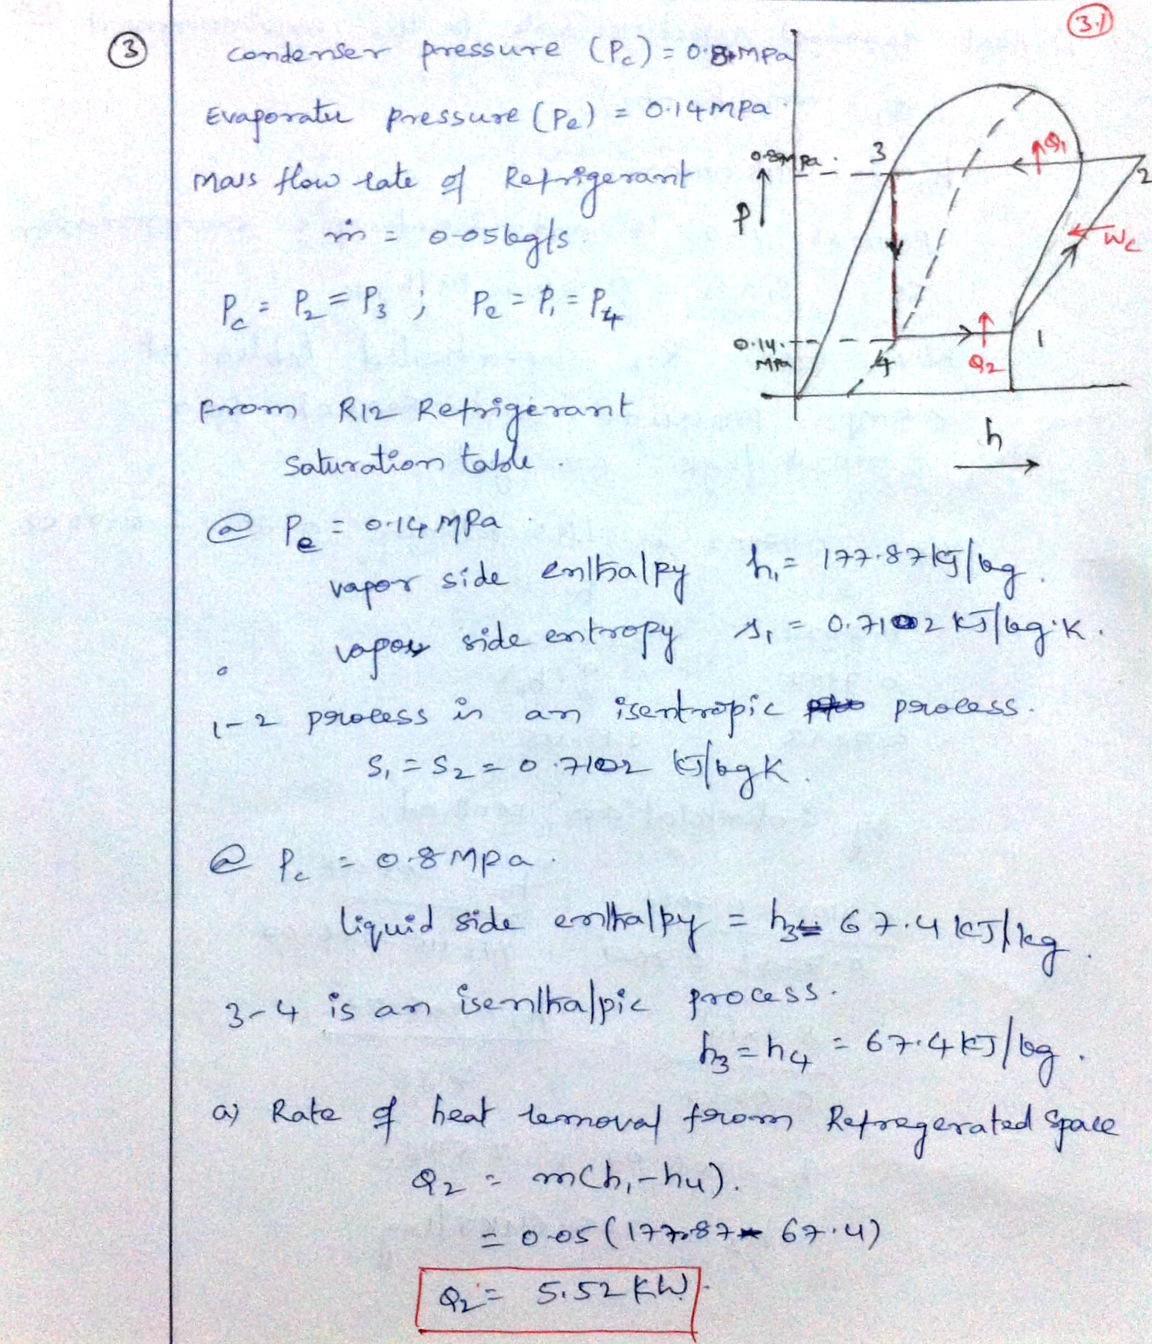 3.1
③ condenser pressure (Pc) = 0.8 MPa
Evaporate pressure (Pe) = 0.14 MPa
Mass flow rate of Refrigerant
ṁ = 0.05 kg/s
Pc = P2 = P3 ; Pe = P1 = P4
0.8 MPa
3
Q1
2
P
Wc
0.14 MPa
4
Q2
1
h
From R12 Refrigerant
saturation table
@ Pe = 0.14 MPa
vapor side enthalpy h1 = 177.87 kJ/kg.
vapor side entropy s1 = 0.7102 kJ/kg.K.
1-2 process is an isentropic process.
S1 = S2 = 0.7102 kJ/kgK.
@ Pc = 0.8 MPa.
liquid side enthalpy = h3 = 67.4 kJ/kg.
3-4 is an isenthalpic process.
h3 = h4 = 67.4 kJ/kg.
a) Rate of heat removal from Refregerated space
Q2 = m(h1-h4).
= 0.05 (177.87 - 67.4)
Q2 = 5.52 KW.